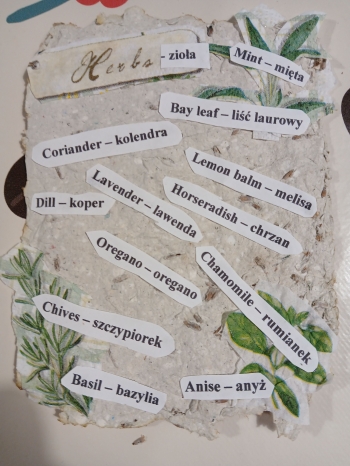 Herbs - zioła
Mint – mięta
Bay leaf – liść laurowy
Coriander – kolendra
Lemon balm – melisa
Lavender – lawenda
Horseradish – chrzan
Dill – koper
Oregano – oregano
Chamomile – rumianek
Chives – szczypiorek
Basil – bazylia
Anise – anyż